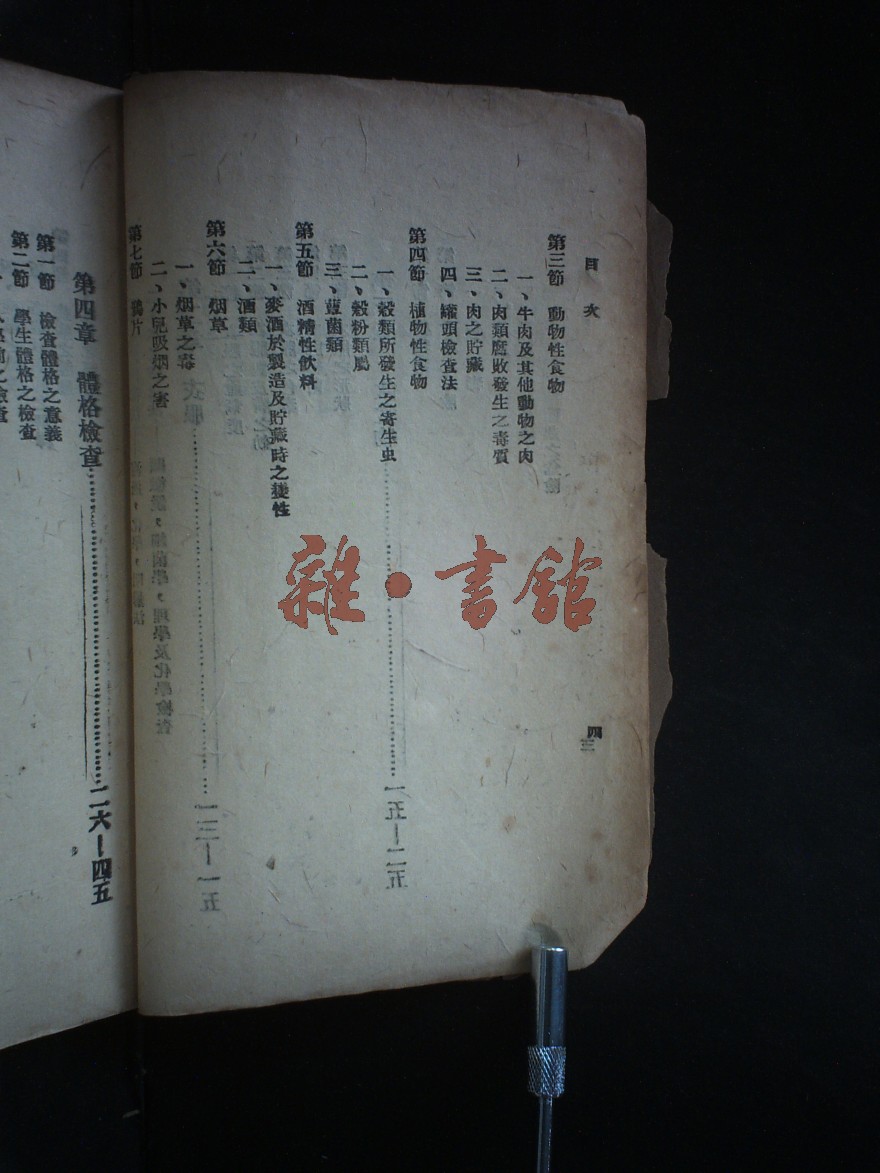 目次
四
第三節 動物性食物
一、牛肉及其他動物之肉
二、肉類腐敗發生之毒質
三、肉之貯藏
四、罐頭檢查法
第四節 植物性食物
一、穀類所發生之寄生虫
二、穀粉類
三、蕈菌類
第五節 酒精性飲料
一、麥酒於製造及貯藏時之變性
二、酒類
第六節 烟草
一、烟草之毒
二、小兒吸烟之害
第七節 鴉片
第四章 體格檢查………二六—四五
第一節 檢查體格之意義
第二節 學生體格之檢查
雜·書館